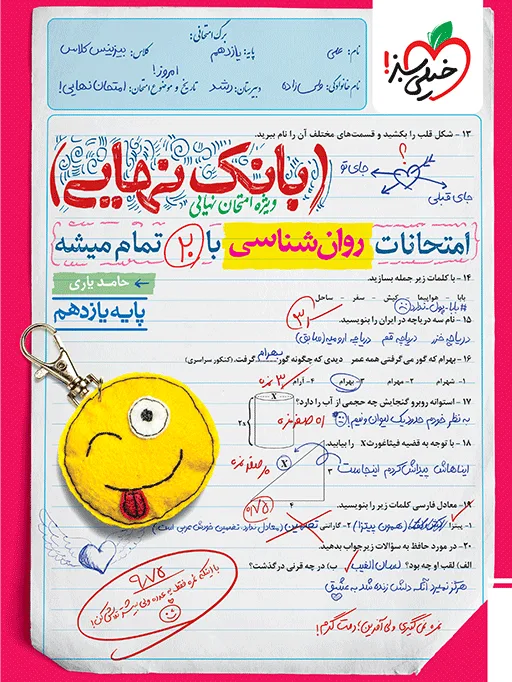 برگ امتحانی:
نام: علی پایه: یازدهم کلاس: بیزینس کلاس
امروز!
نام خانوادگی: ولی‌زاده دبیرستان: رشد تاریخ و موضوع امتحان: امتحان نهایی!
خیلی سبز!
۱۳ - شکل قلب را بکشید و قسمت‌های مختلف آن را نام ببرید.
؟
جای تو
جای قبلی
(بانک نهایی)
ویژه امتحان نهایی
{امتحانات روان‌شناسی با ۲۰ تمام میشه}
حامد یاری
پایه یازدهم
۱۴ - با کلمات زیر جمله بسازید.
بابا - هواپیما - کیش - سفر - ساحل
#بابا-پول-ندارد
۱۵ - نام سه دریاچه در ایران را بنویسید.
دریاچه خزر دریاچه قم دریاچه ارومیه (سابق)
۱۶ - بهرام که گور می‌گرفتی همه عمر دیدی که چگونه گور بهرام گرفت. (کنکور سراسری)
۱- شهرام ۲- مهرام ۳- بهرام ۴- آرام
۱۷ - استوانه روبرو گنجایش چه حجمی از آب را دارد؟
به نظر خودم حدود یک لیوان و نیم!
X
2x
۱۸ - با توجه به قضیه فیثاغورث X را بیابید.
ایناهاش پیداش کردم اینجاست
X
۳
۴
۱۹- معادل فارسی کلمات زیر را بنویسید.
۱- پیتزا (همون پیتزا) ۲- گارانتی تضمین (معادل ندارد، تضمین خودش عربی است)
۲۰- در مورد حافظ به سؤالات زیر جواب بدهید.
الف) لقب او چه بود؟ لسان الغیب ب) در چه قرنی درگذشت؟
هرگز نمیرد آنکه دلش زنده شد به عشق
۹/۷۵